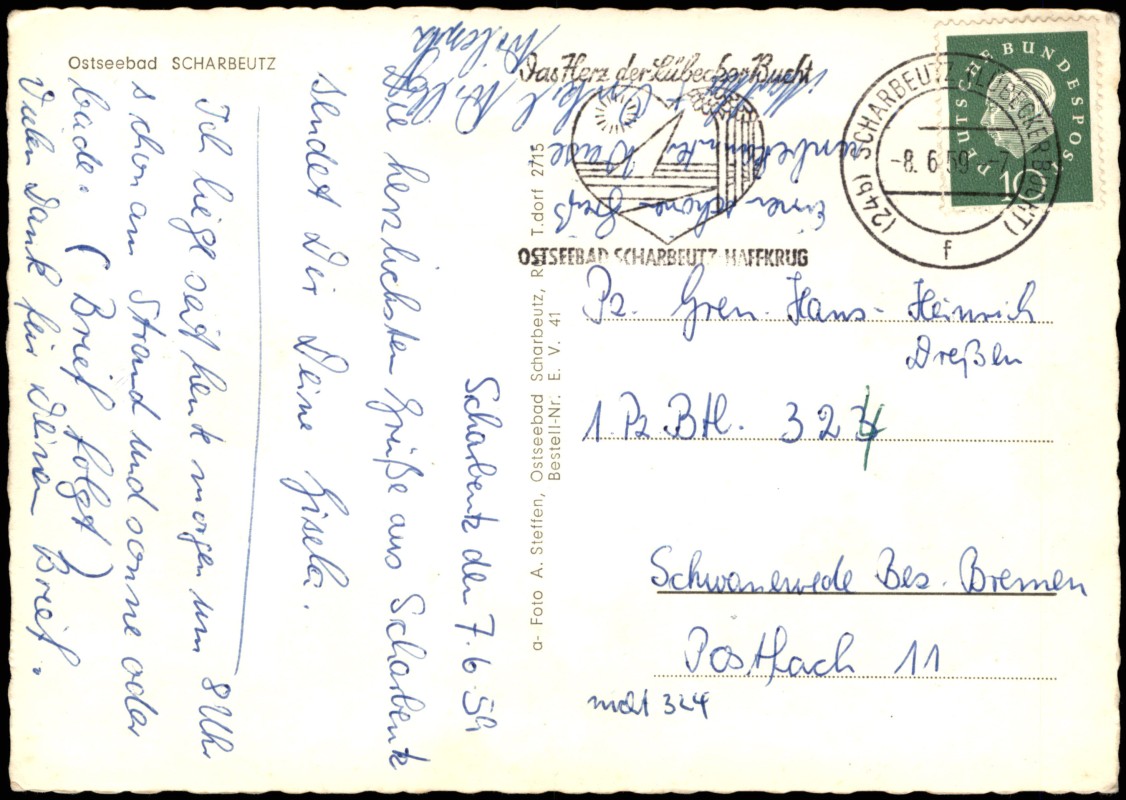 Ostseebad SCHARBEUTZ
Scharbeutz den 7.6.59
Die herzlichsten Grüße aus Scharbeutz
sendet Dir Deine Gisela.
Ich liege seit heute morgen um 8 Uhr
schon am Strand und sonne oder
bade. (Brief folgt)
Vielen Dank für Deinen Brief.
a- Foto A. Steffen, Ostseebad Scharbeutz, T.dorf 2715
Bestell-Nr. E. V. 41
Einen schönen Gruß
unbekannter Weise
Onkel Willi
Das Herz der Lübecker Bucht
OSTSEEBAD SCHARBEUTZ-HAFFKRUG
(24b) SCHARBEUTZ (LÜBECKER BUCHT)
-8.6.59.-7
f
DEUTSCHE BUNDESPOST
10
Pz. Gren. Hans-Heinrich
Dreßen
1. Pz. Btl. 324
Schwanewede Bez. Bremen
Postfach 11
nicht 324